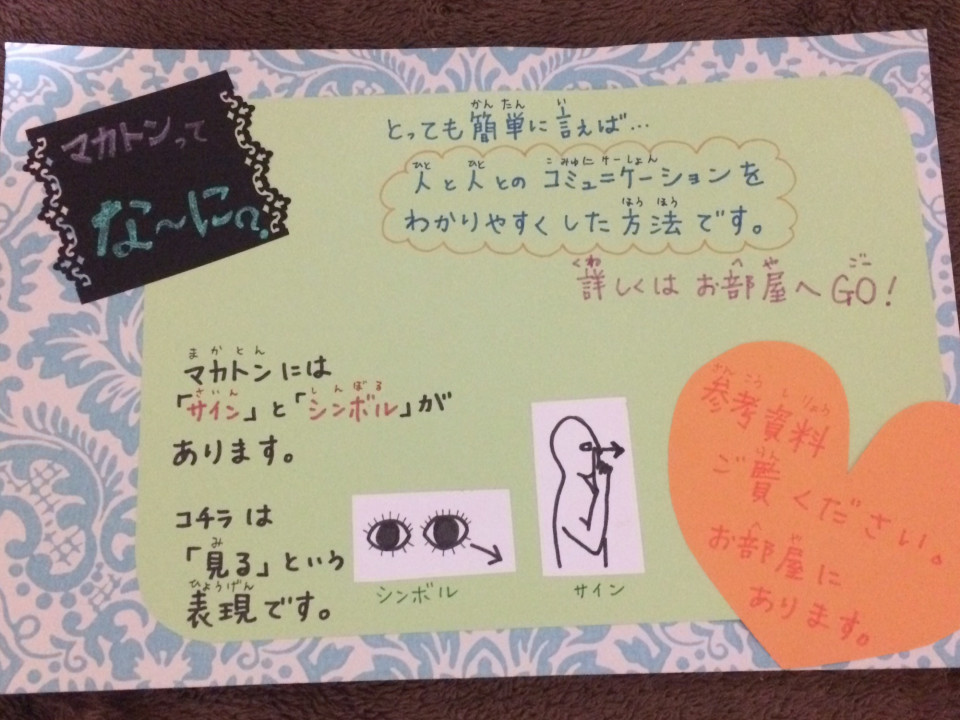 マカトンって
な～に？
とっても簡単に言えば…
人と人とのコミュニケーションを
わかりやすくした方法です。
詳しくはお部屋へGO！
マカトンには
「サイン」と「シンボル」が
あります。
コチラは
「見る」という
表現です。
シンボル
サイン
参考資料
ご覧ください。
お部屋に
あります。